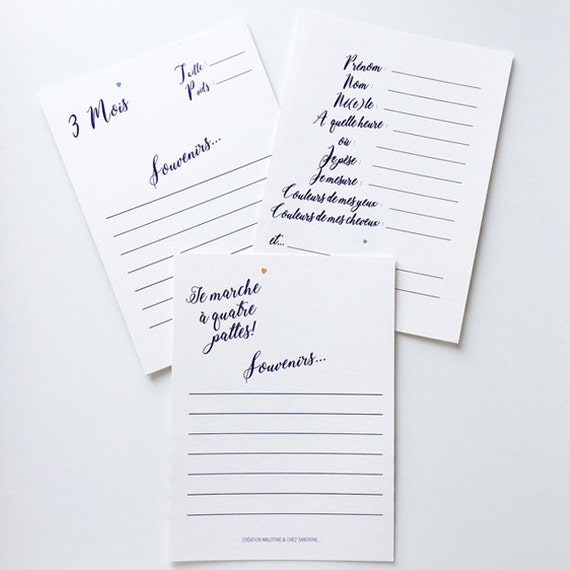 3 Mois
Taille :
Poids :
Souvenirs...
Prénom :
Nom :
Né(e) le :
A quelle heure :
où :
Je pèse :
Je mesure :
Couleurs de mes yeux :
Couleurs de mes cheveux :
et...
Je marche
à quatre
pattes!
Souvenirs...
CRÉATION MALITYNE & CHEZ SANDRINE...